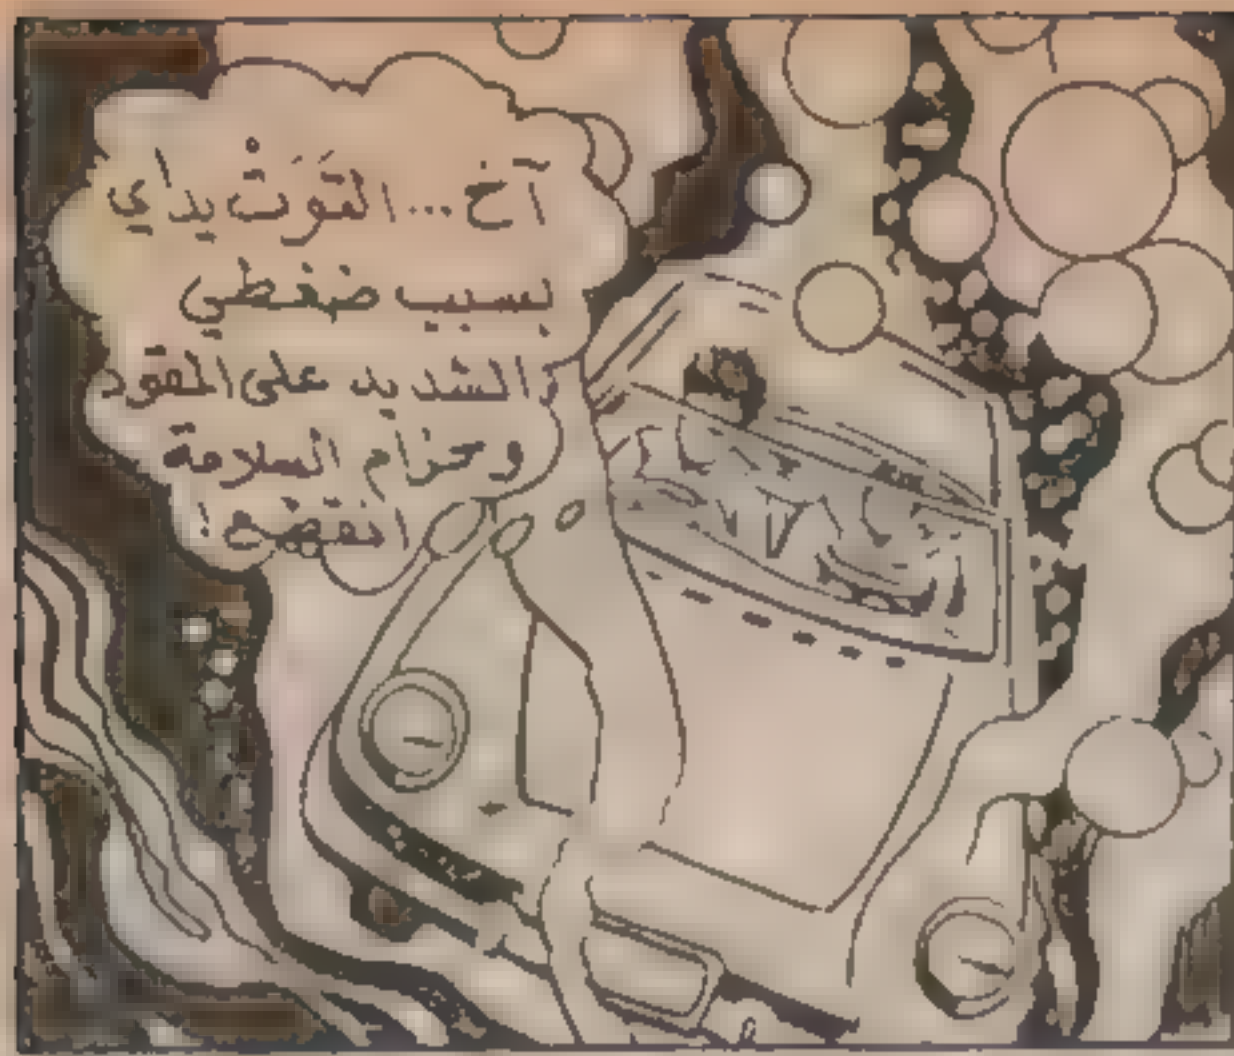 آخ... القَوَتْ يداي
بسبب ضغطي
الشديد على المقود
وحزام السلامة
انقضع!